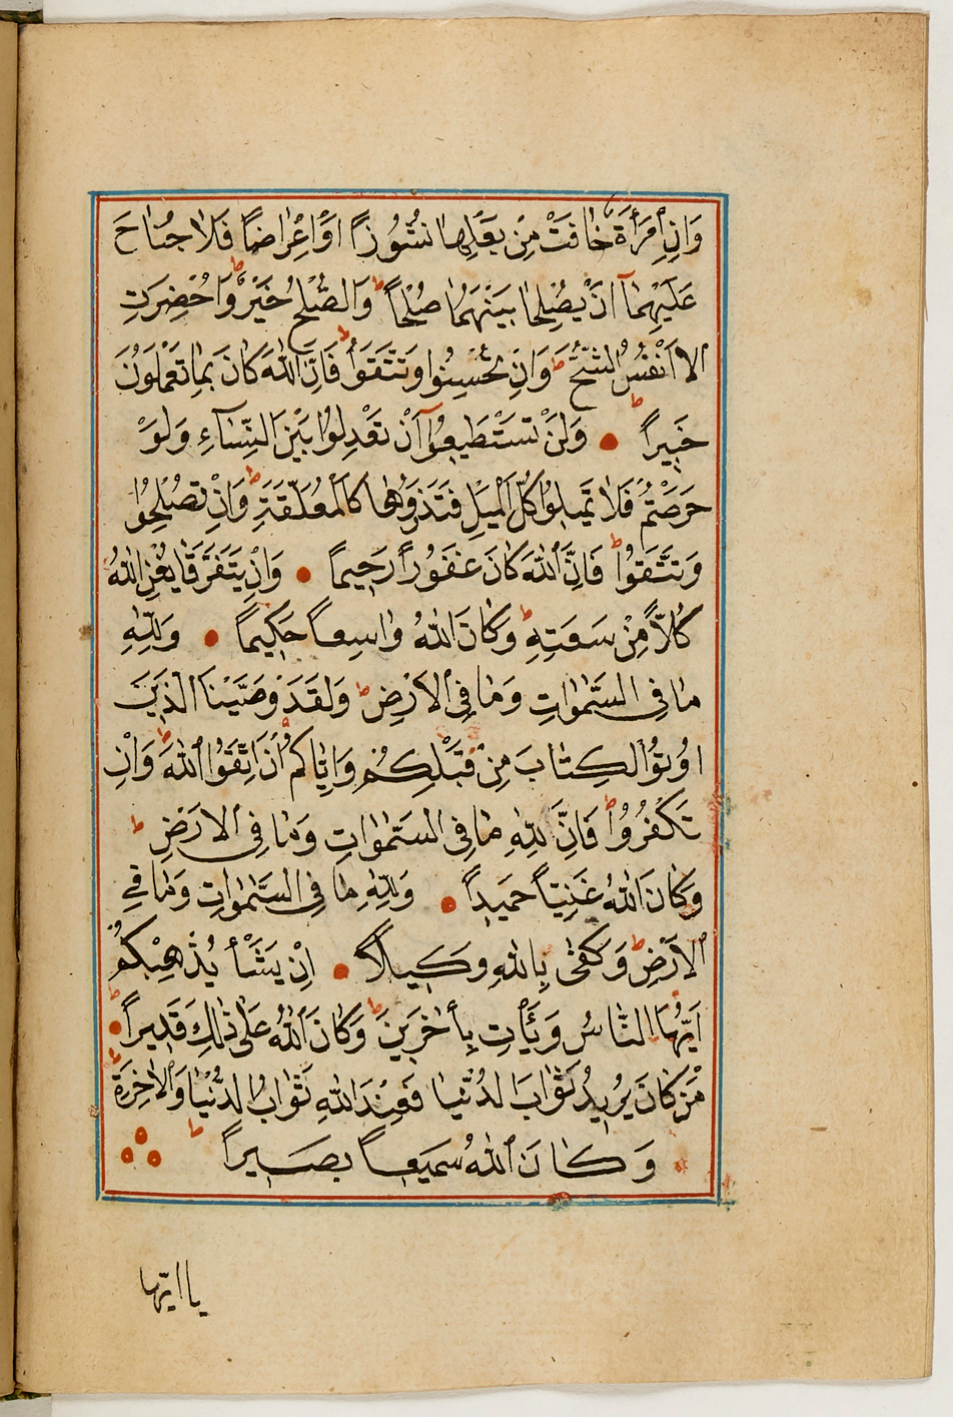 وَاِنِ امْرَأَةٌ خَافَتْ مِنْ بَعْلِهَا نُشُوزًا اَوْ اِعْرَاضًا فَلَا جُنَاحَ
عَلَيْهِمَآ اَنْ يُصْلِحَا بَيْنَهُمَا صُلْحًا ط وَالصُّلْحُ خَيْرٌ ط وَاُحْضِرَتِ
الْاَنْفُسُ الشُّحَّ ط وَاِنْ تُحْسِنُوا وَتَتَّقُوا ط فَاِنَّ اللّٰهَ كَانَ بِمَا تَعْمَلُونَ
خَبِيرًا ط وَلَنْ تَسْتَطِيعُوآ اَنْ تَعْدِلُوا بَيْنَ النِّسَآءِ وَلَوْ
حَرَصْتُمْ فَلَا تَمِيلُوا كُلَّ الْمَيْلِ فَتَذَرُوهَا كَالْمُعَلَّقَةِ ط وَاِنْ تُصْلِحُوا
وَتَتَّقُوا ط فَاِنَّ اللّٰهَ كَانَ غَفُورًا رَحِيمًا وَاِنْ يَتَفَرَّقَا يُغْنِ اللّٰهُ
كُلًّا مِنْ سَعَتِهِ ط وَكَانَ اللّٰهُ وَاسِعًا حَكِيمًا وَلِلّٰهِ
مَا فِى السَّمٰوَاتِ وَمَا فِى الْاَرْضِ ط وَلَقَدْ وَصَّيْنَا الَّذِينَ
اُوتُوا الْكِتَابَ مِنْ قَبْلِكُمْ وَاِيَّاكُمْ اَنِ اتَّقُوا اللّٰهَ ط وَاِنْ
تَكْفُرُوا ط فَاِنَّ لِلّٰهِ مَا فِى السَّمٰوَاتِ وَمَا فِى الْاَرْضِ ط
وَكَانَ اللّٰهُ غَنِيًّا حَمِيدًا وَلِلّٰهِ مَا فِى السَّمٰوَاتِ وَمَا فِى
الْاَرْضِ ط وَكَفٰى بِاللّٰهِ وَكِيلًا اِنْ يَشَأْ يُذْهِبْكُمْ
اَيُّهَا النَّاسُ وَيَأْتِ بِاٰخَرِينَ ط وَكَانَ اللّٰهُ عَلٰى ذٰلِكَ قَدِيرًا ط
مَنْ كَانَ يُرِيدُ ثَوَابَ الدُّنْيَا فَعِنْدَ اللّٰهِ ثَوَابُ الدُّنْيَا وَالْاٰخِرَةِ ط
وَكَانَ اللّٰهُ سَمِيعًا بَصِيرًا ط
يا ايّها